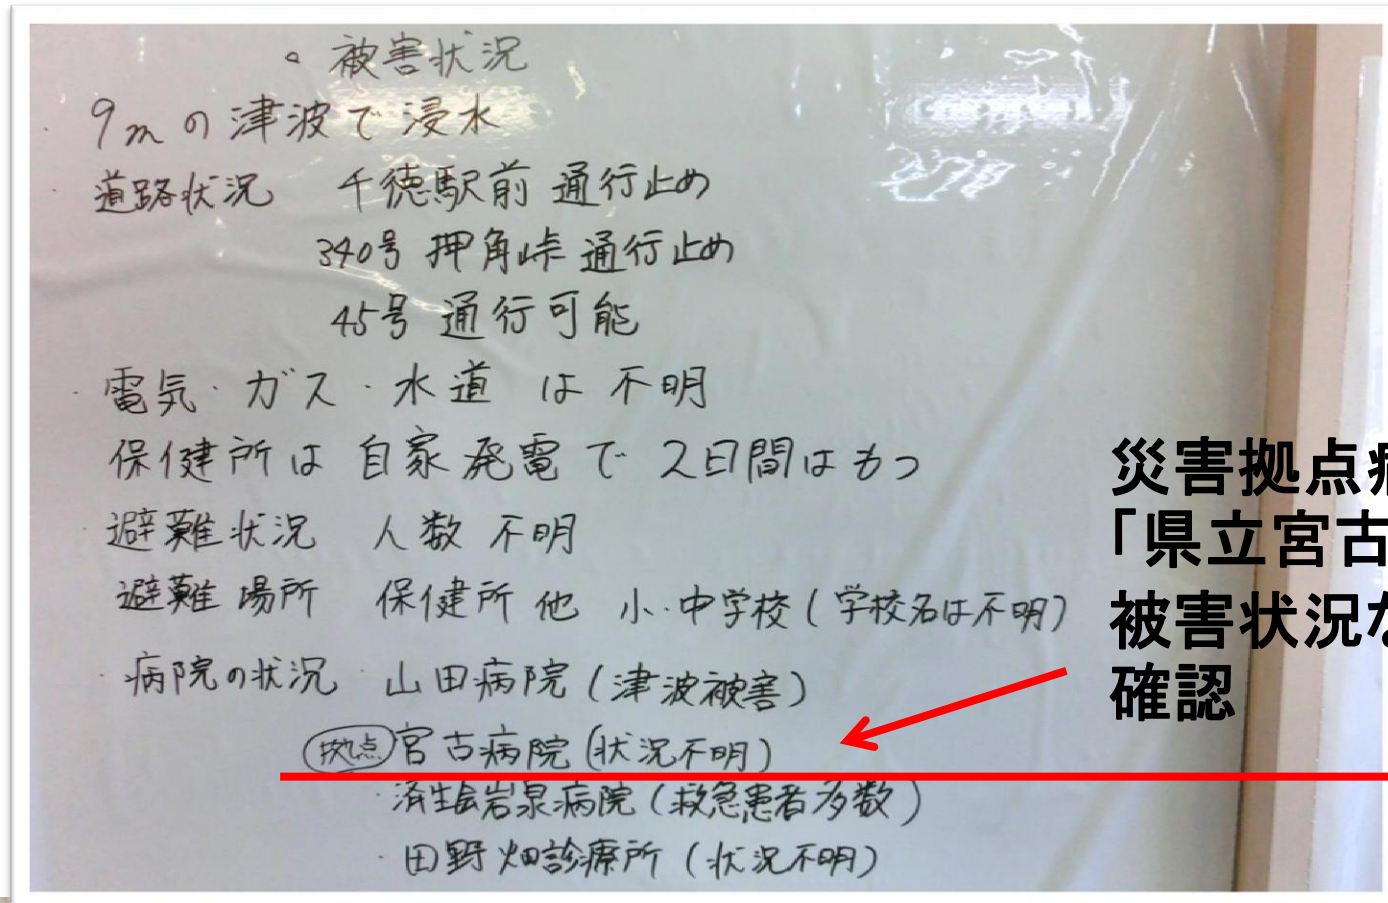 。被害状況
9mの津波で浸水
道路状況 千徳駅前 通行止め
340号 押角峠 通行止め
45号 通行可能
・電気・ガス・水道 は 不明
保健所は 自家発電で 2日間はもつ
・避難状況 人数 不明
避難場所 保健所他 小・中学校(学校名は不明)
・病院の状況・山田病院(津波被害)
拠点 宮古病院(状況不明)
・済生会岩泉病院(救急患者多数)
・田野畑診療所(状況不明)
災害拠点病
「県立宮古
被害状況な
確認